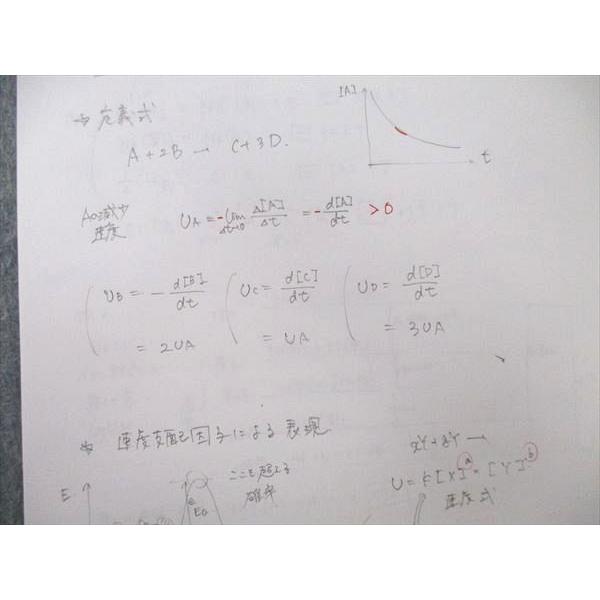 ⇒ 定義式
[A]
A + 2B → C + 3D.
t
Aの減少速度
υA = -lim Δt→0 Δ[A]/Δt = -d[A]/dt > 0
υB = -d[B]/dt
= 2υA
υC = d[C]/dt
= υA
υD = d[D]/dt
= 3υA
⇒ 速度支配因子による表現
E
Ea
ここを超える
確率
υ = k[X]^a [Y]^b
速度式